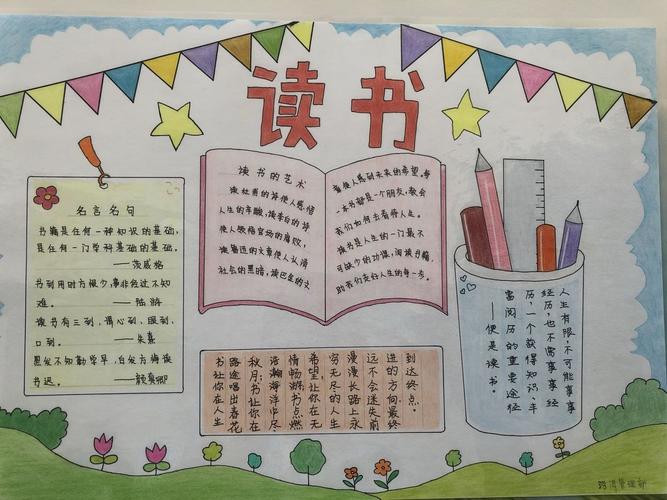 读书
名言名句
书籍是任何一种知识的基础,
是任何一门学科基础的基础。
——茨威格
书到用时方恨少,事非经过不知
难。——陆游
读书有三到,谓心到、眼到、
口到。——朱熹
黑发不知勤学早,白发方悔读
书迟。——颜真卿
读书的艺术
读杜甫的诗使人感悟
人生的辛酸,读李白的诗
使人领悟官场的腐败,
读鲁迅的文章使人认清
社会的黑暗,读巴金的文
章使人感到未来的希望。每
一本书都是一个朋友,教会
我们如何去看待人生。
读书是人生的一门最不
可缺少的功课,阅读书籍,
助我们走好人生的每一步。
人生有限,不可能事事
经历,也不需事事经
历,一个获得知识、丰
富阅历的重要途径
——便是读书。
到达终点。
进的方向,最终
远不会迷失前
漫漫长路上永
穷无尽的人生
希望让你在无
情畅游书点燃
浩瀚海洋中尽
秋月书让你在
路途唱出春花
书让你在人生